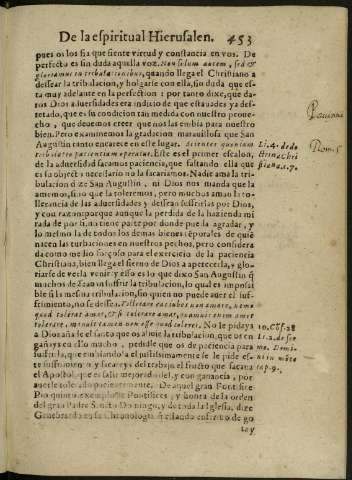 De la espiritual Hierusalen. 453
pues os los fia que siente virtud y constancia en vos. De
perfecto es sin duda aquella voz. Non solum autem, sed &
gloriamur in tribulationibus, quando llega el Christiano a
dessear la tribulacion, y holgarse con ella, sin duda que es-
ta muy adelante en la perfection: y por tanto dixe, que da-
ros Dios aduersidades era indicio de que estauades ya des-
tetado, que es su condicion tan medida con nuestro peque-
ño, que deuemos creer que nos las embia para nuestro
bien. Pero examinemos la gradacion marauillosa que San
Augustin tanto encarece en este lugar. scientes quoniam
tribulatio patientiam operatur. Este es el primer escalon,
de la aduersidad sacamos paciencia, que faltando ella que
es su objecto necessario no la sacariamos. Nadie ama la tri-
bulacion dize San Augustin, ni Dios nos manda que la
amemos, sino que la toleremos, pero muchos aman la to-
llerancia de las aduersidades y dessean sufrirlas por Dios,
y con razon: porque aunque la perdida de la hazienda mi
rada de por si, no tiene parte por donde pueda agradar, y
lo mesmo la de todos los demas bienes temporales de quié
nacen las turbaciones en nuestros pechos, pero considera
da como medio forçoso para el exercicio de la paciencia
Christiana, bien llega el sieruo de Dios a apetecerla, y glo-
riarse de verla venir y esso es lo que dixo San Augustin q̃
muchos dessean sufrir la tribulacion, lo qual es imposi
ble si la mesma tribulacion, sin quien no puede auer el suf-
frimiento, no se dessea.
tolerare, mauult tamen non esse quod toleret. No le pidays
a Dios añade el santo que os aliuie la tribulacion, que us en
gañays en ello mucho, pedidle que os de paciencia para
sufrirla, que embiandola el justissimamente se le pide es-
te suffrimiento y sacareys del trabajo el fructo que sacaua
el Apostol, que es salir mejorado del, y con ganancia, por
auerle tolerado pacientemente. De aquel gran Pontifice
Pio quinto exemplo de Pontifices, y honra de la orden
del gran Padre Sancto Domingo, y de toda la Iglesia, dize
Genebrardo en su Chronologia
Li. 4. de do
ctrin. Chri
stiana. c. 7.
Rom. 5
10. Cõf. 28